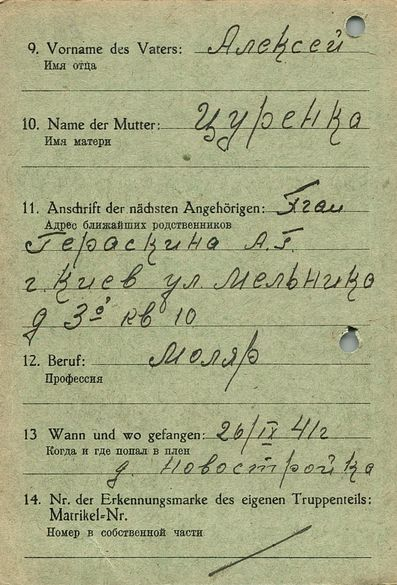 9. Vorname des Vaters: Алексей
Имя отца
10. Name der Mutter: Цуренка
Имя матери
11. Anschrift der nächsten Angehörigen: Frau
Адрес ближайших родственников
Гераскина А.Г.
г. Киев ул. Мельника
д 3а кв 10
12. Beruf: Моляр
Профессия
13 Wann und wo gefangen: 26/IX 41г
Когда и где попал в плен
д. Новостройка
14. Nr. der Erkennungsmarke des eigenen Truppenteils:
Matrikel=Nr.
Номер в собственной части